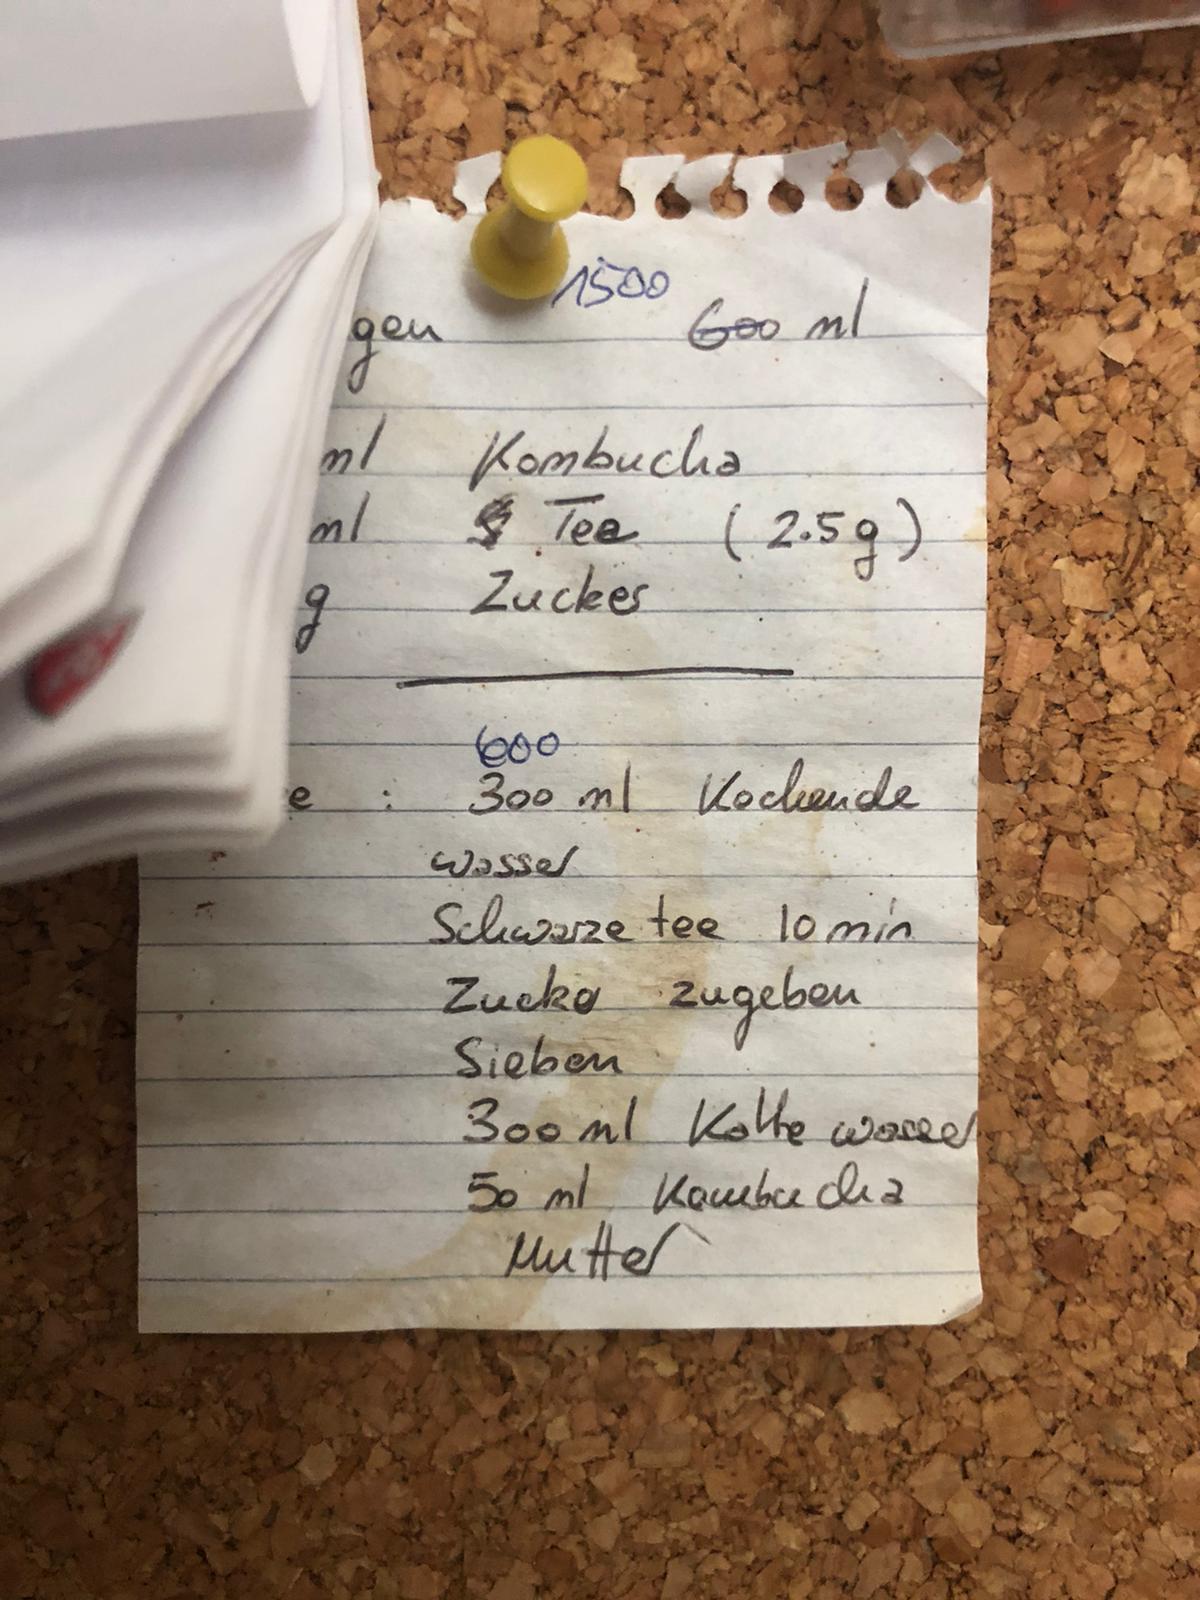 1500
gen 600 ml
ml Kombucha
ml Tee (2.5g)
g Zucker
600
e : 300 ml Kochende
wasser
Schwarze tee 10 min
Zucker zugeben
Sieben
300 ml Kalte wasser
50 ml Kombucha
Mutter